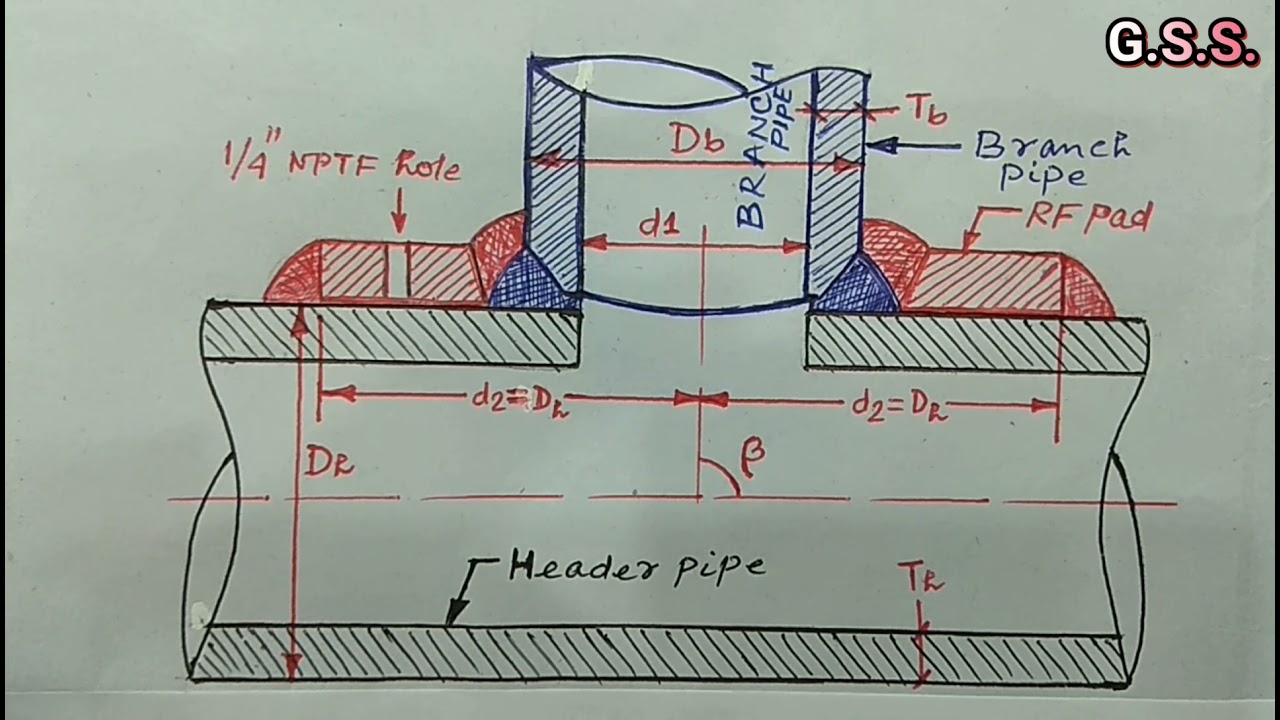 G.S.S.
1/4" NPTF hole
BRANCH
PIPE
Tb
Db
Branch
pipe
RF pad
d1
d2=Dh
d2=Dh
Dh
β
Header pipe
Th